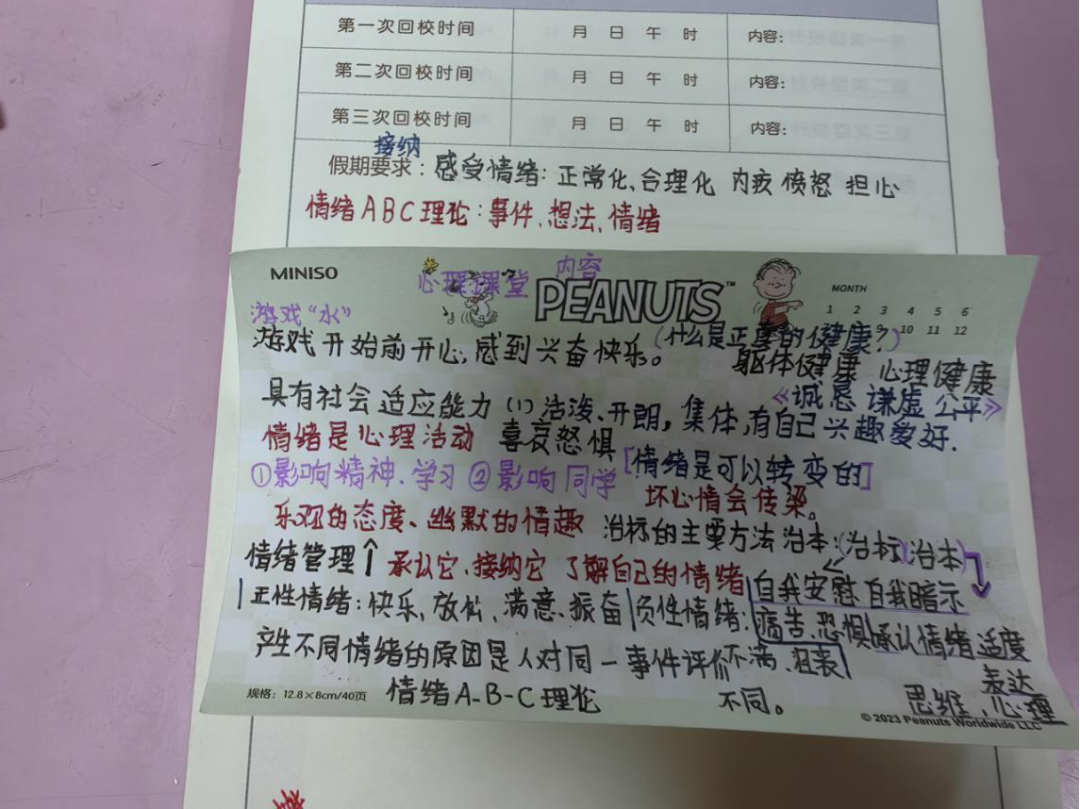 第一次回校时间 月 日 午 时 内容：
第二次回校时间 月 日 午 时 内容：
第三次回校时间 月 日 午 时 内容：
接纳
假期要求：感受情绪：正常化、合理化 内疚 愤怒 担心
情绪ABC理论：事件、想法、情绪
MINISO
心理课堂 内容
PEANUTS™
MONTH
1 2 3 4 5 6
9 10 11 12
游戏“水”
游戏开始前开心,感到兴奋快乐。(什么是正真的健康?)
躯体健康 心理健康
具有社会适应能力 (1)活泼、开朗,集体,有自己兴趣爱好.
《诚恳 谦虚 公平》
情绪是心理活动 喜哀怒惧
①影响精神、学习 ②影响同学 [情绪是可以转变的]
坏心情会传染。
乐观的态度、幽默的情趣 治标的主要方法 治本:(治标)(治本)
情绪管理↑ 承认它、接纳它 了解自己的情绪 自我安慰 自我暗示
正性情绪:快乐,放松,满意、振奋 负性情绪: 痛苦、恐惧 承认情绪 适度
产生不同情绪的原因是人对同一事件评价 不满、沮丧 表达
规格：12.8×8cm/40页 情绪A-B-C理论 不同。 思维、心理
© 2023 Peanuts Worldwide LLC